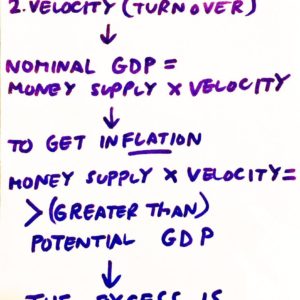 2. VELOCITY (TURNOVER)
↓
NOMINAL GDP =
MONEY SUPPLY X VELOCITY
↓
TO GET INFLATION
MONEY SUPPLY X VELOCITY =
> (GREATER THAN)
POTENTIAL GDP
↓
THE EXCESS IS